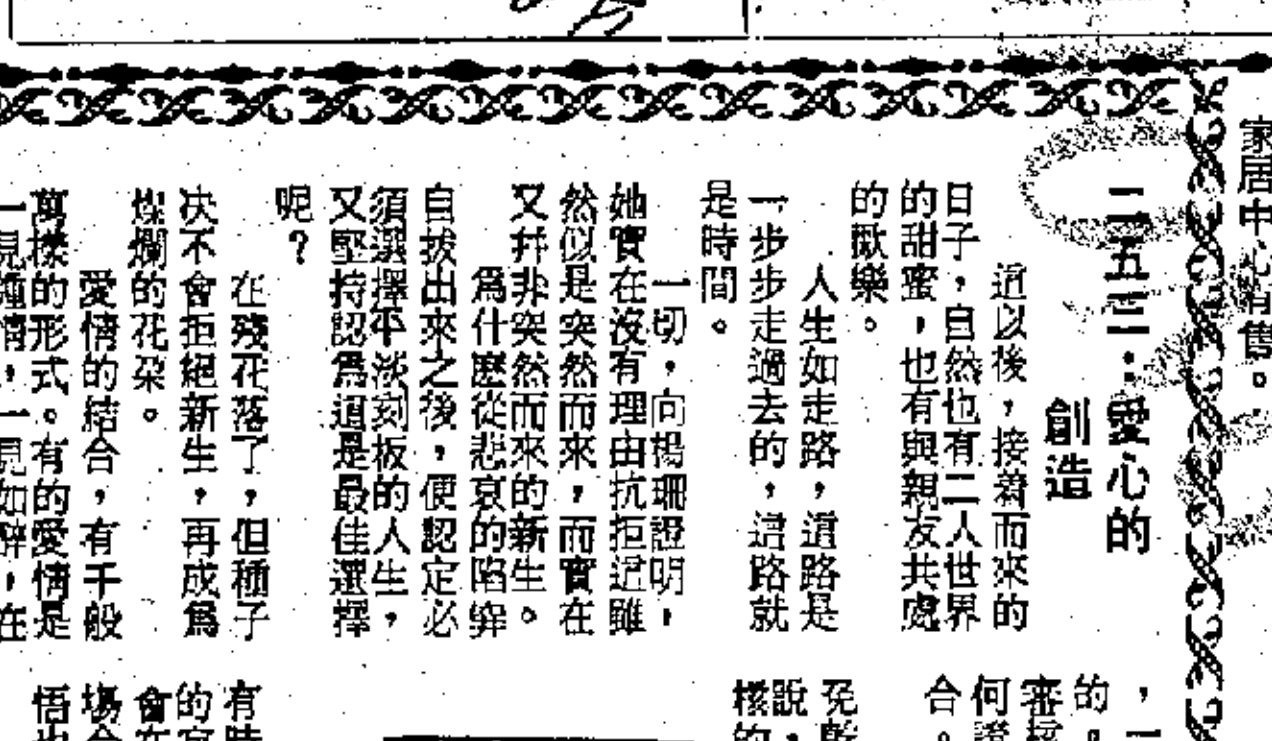 家居中心有售。
二五三：愛心的
創造
這以後，接着而來的
日子，自然也有二人世界
的甜蜜，也有與親友共處
的歡樂。
人生如走路，道路是
一步步走過去的，這路就
是時間。
一切，向楊珊證明，
她實在沒有理由抗拒這雖
然似是突然而來，而實在
又幷非突然而來的新生。
爲什麼從悲哀的陷穽
自拔出來之後，便認定必
須選擇平淡刻板的人生，
又堅持認爲這是最佳選擇
呢？
在殘花落了，但種子
决不會拒絕新生，再成爲
燦爛的花朶。
愛情的結合，有千般
萬樣的形式。有的愛情是
一見鍾情，一見如醉，在
，一
的。
審核
何證
合。
說，
核的
有時
的
會在
場合
悟也